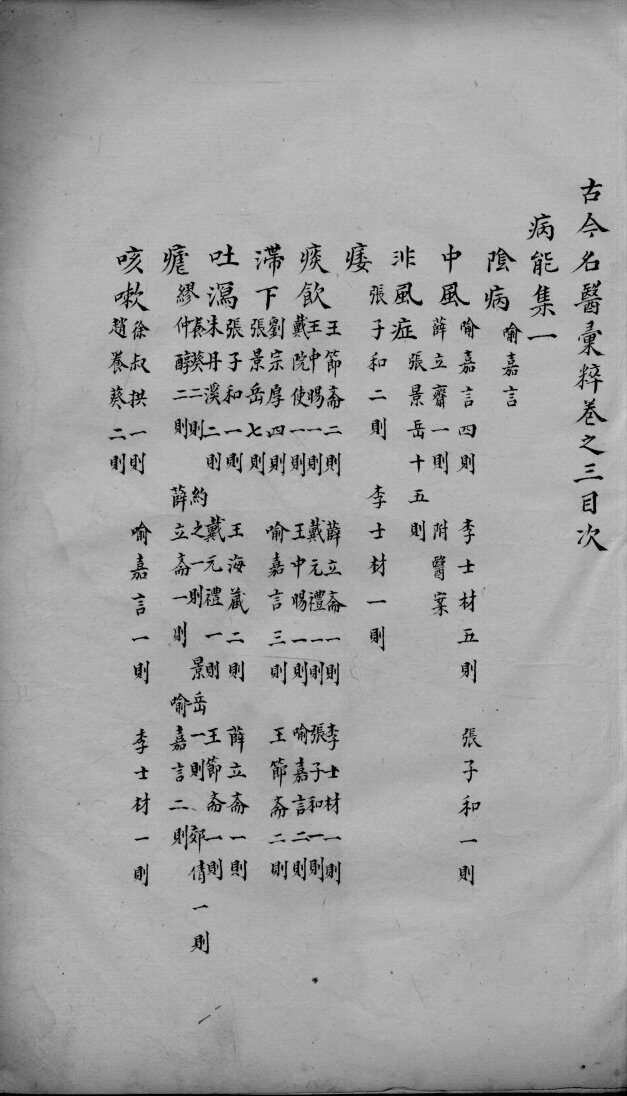 古今名醫彙粹卷之三目次
病能集一
陰病 喻嘉言
中風 喻嘉言四則 李士材五則 張子和一則
薛立齋一則 附醫案
非風症 張景岳十五則
痿 張子和二則 李士材一則
痰飲 王節斋二則 薛立斋一則 李士材一則
王中賜一則 戴元禮一則 張子和一則
戴院使一則 王中賜一則 喻嘉言二則
滯下 劉宗厚四則 喻嘉言三則 王節斋二則
張景岳七則
吐瀉 張子和一則 王海藏二則 薛立斋一則
朱丹溪二則 戴元禮一則 王節斋一則
瘧 養葵二則 約之一則 景岳一則 郊倩一則
繆仲醇二則 薛立斋一則 喻嘉言二則
咳嗽 徐叔拱一則 喻嘉言一則 李士材一則
趙養葵二則